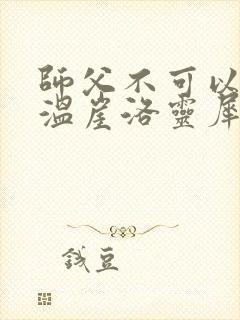 師父不可以
溫崖洛靈犀
錢豆